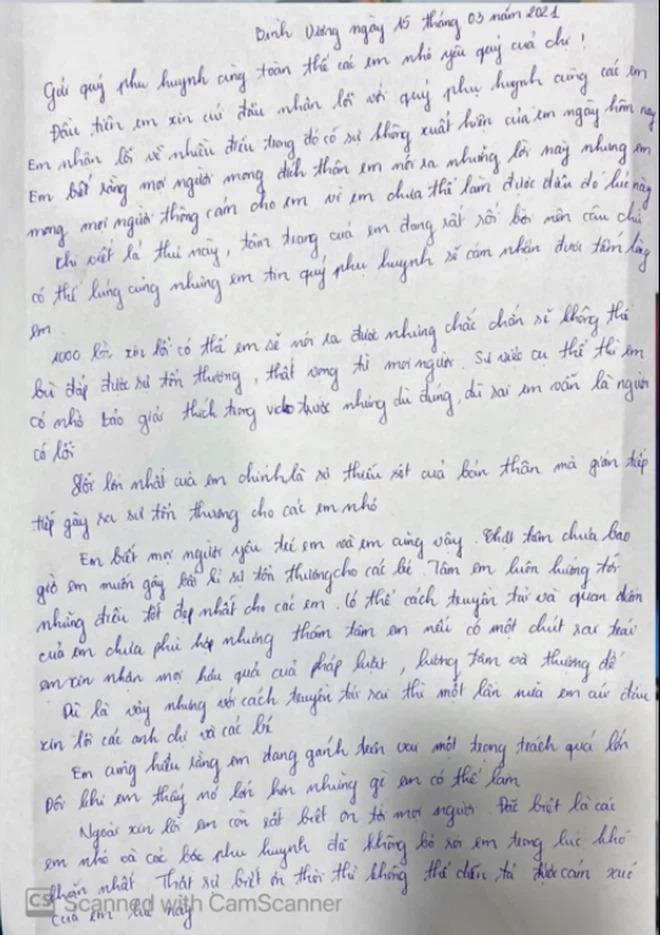 Bình Dương ngày 15 tháng 03 năm 2021
Gửi quý phụ huynh cùng toàn thể các em nhỏ yêu quý của chị !
Đầu tiên em xin cúi đầu nhận lỗi với quý phụ huynh cùng các em
Em nhận lỗi về nhiều điều trong đó có sự không xuất hiện của em ngày hôm nay
Em biết rằng mọi người mong đích thân em nói ra những lời này nhưng em
mong mọi người thông cảm cho em vì em chưa thể làm được điều đó lúc này
Khi viết lá thư này, tâm trạng của em đang rất rối bời nên câu chữ
có thể lủng củng nhưng em tin quý phụ huynh sẽ cảm nhận được tấm lòng
em
1000 lần xin lỗi có thể em sẽ nói ra được nhưng chắc chắn sẽ không thể
bù đắp được sự tổn thương, thất vọng từ mọi người. Sự việc cụ thể thì em
có nhờ báo giải thích trong video trước nhưng dù đúng, dù sai em vẫn là người
có lỗi
Lỗi lớn nhất của em chính là sự thiếu sót của bản thân mà gián tiếp
tiếp gây ra sự tổn thương cho các em nhỏ
Em biết mọi người yêu trẻ em và em cũng vậy. Thật tâm chưa bao
giờ em muốn gây bất kì sự tổn thương cho các bé. Tâm em luôn hướng tới
những điều tốt đẹp nhất cho các em. Có thể cách truyền tải và quan điểm
của em chưa phù hợp nhưng thâm tâm em nếu có một chút sai trái
em xin nhận mọi hậu quả của pháp luật, lương tâm và thượng đế
Dù là vậy nhưng với cách truyền tải sai thì một lần nữa em cúi đầu
xin lỗi các anh chị và các bé
Em cũng hiểu rằng em đang gánh trên vai một trọng trách quá lớn
Đôi khi em thấy nó lớn hơn những gì em có thể làm
Ngoài xin lỗi em còn rất biết ơn tới mọi người. Đặc biệt là các
em nhỏ và các bậc phụ huynh đã không bỏ rơi em trong lúc khó
khăn nhất. Thật sự biết ơn thôi thì không thể diễn tả được cảm xúc
của em lúc này
CS Scanned with CamScanner